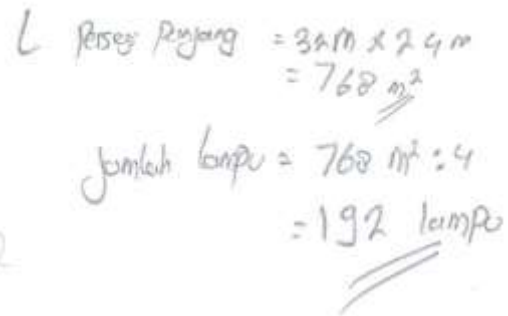 L Persegi Panjang = 32m x 24 m
= 768 m²
Jumlah lampu = 768 m² : 4
= 192 lampu